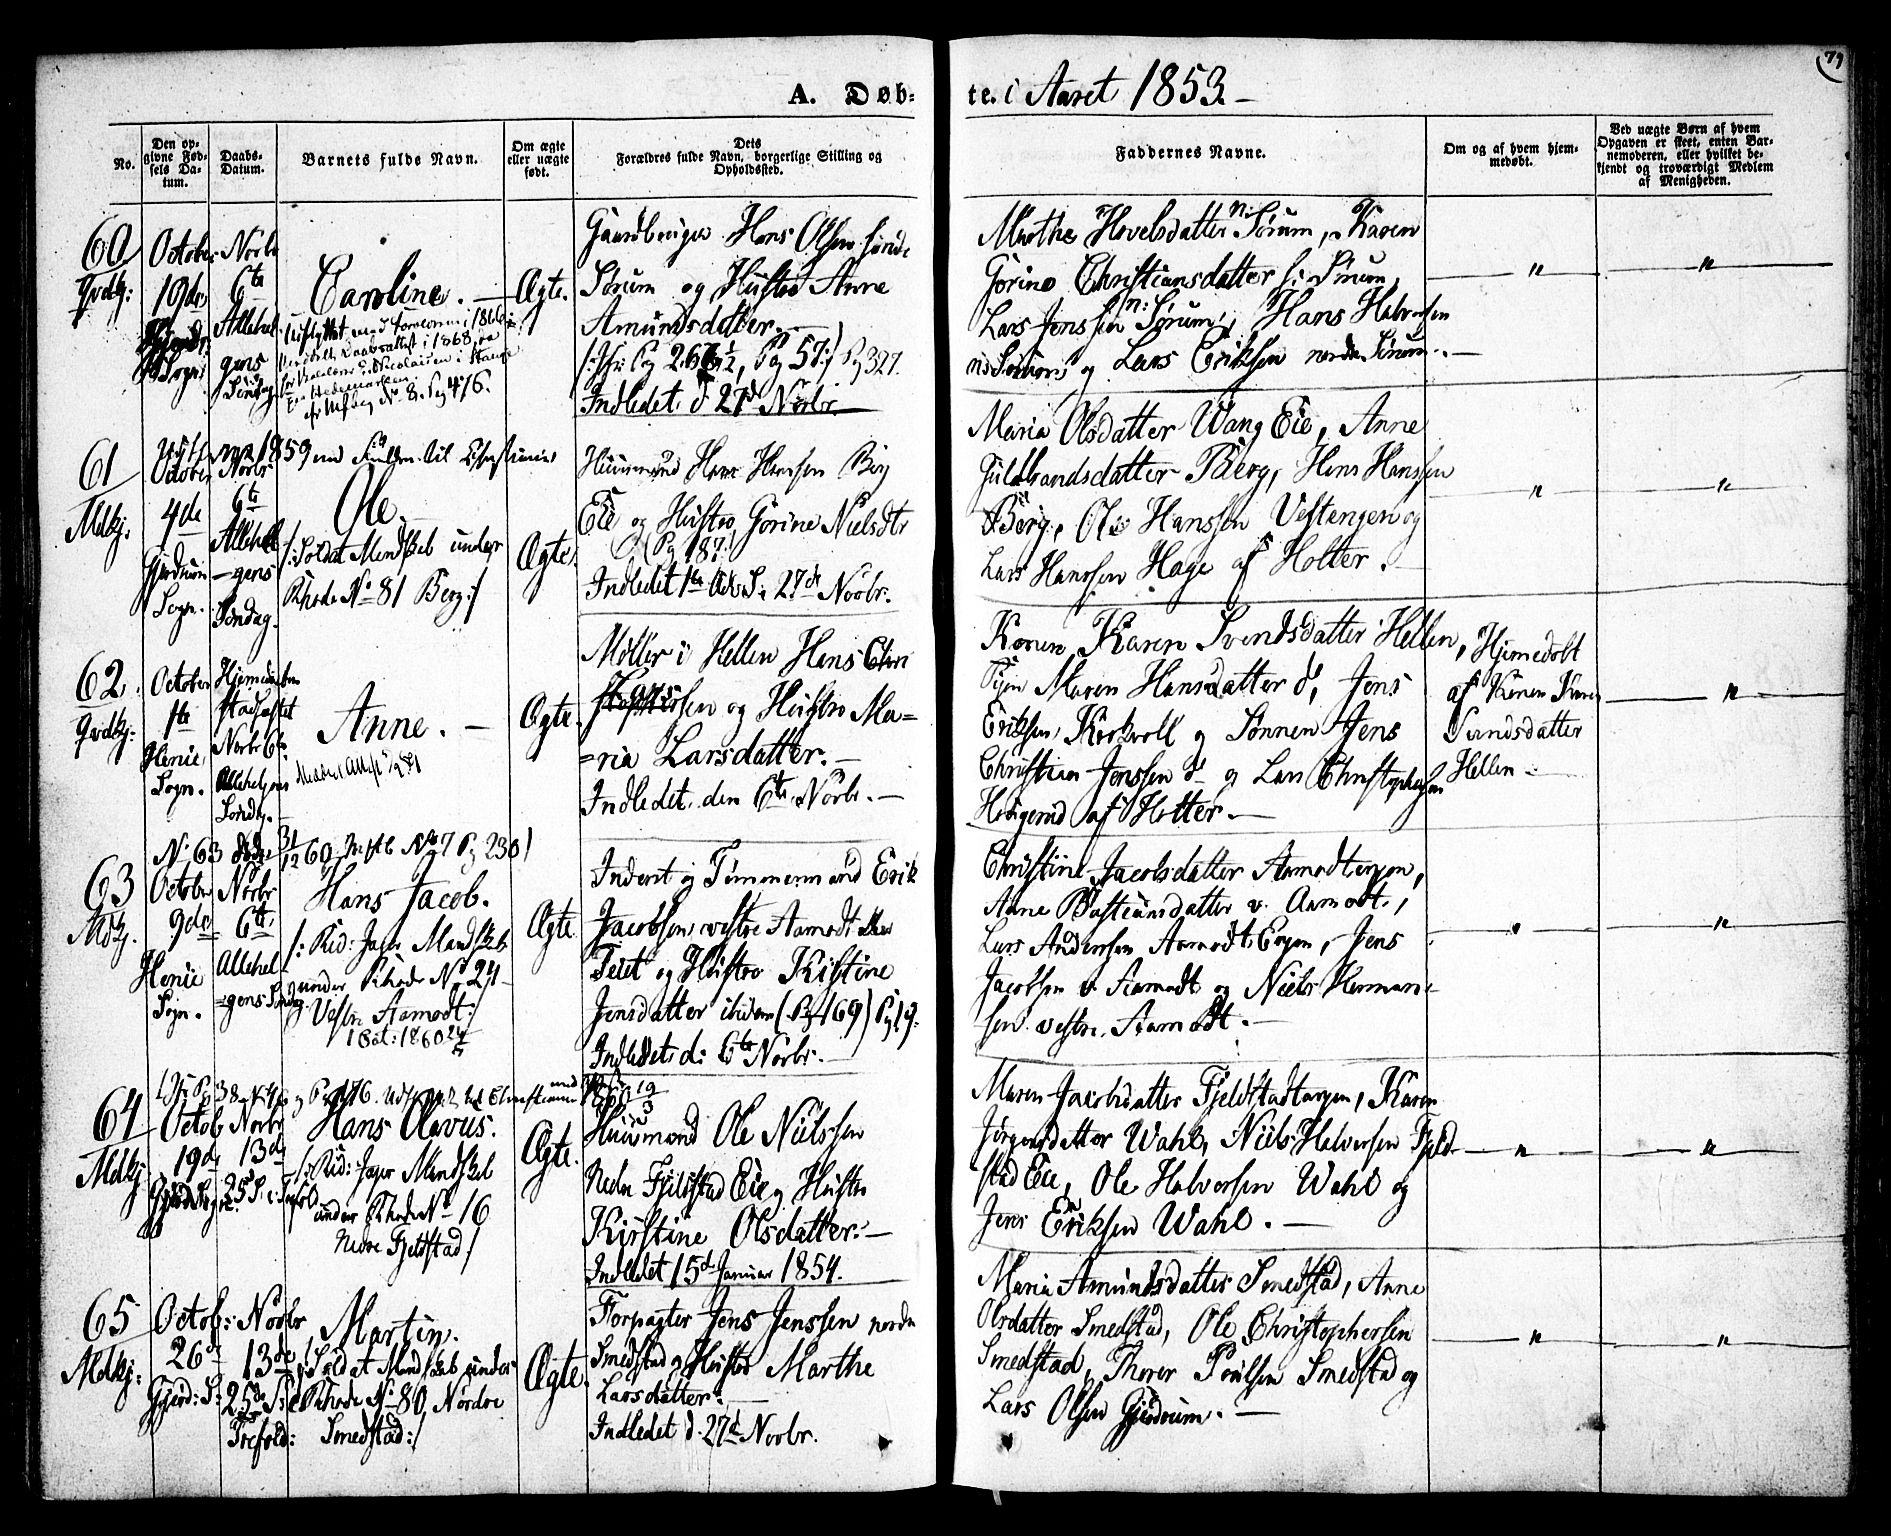 79
A. Døb-
te. i Aaret 1853.
No.
Den opgivne Fødsels Datum.
Daabs-Datum.
Barnets fulde Navn.
Om ægte eller uægte født.
Dets Forældres fulde Navn, borgerlige Stilling og Opholdssted.
Faddernes Navne.
Om og af hvem hjemmedøbt.
Ved uægte Børn af hvem Opgaven er skeet, enten Barnemoderen, eller hvilket bekjendt og troværdigt Medlem af Menigheden.
60
Qvdkj:
October
19de
Sogn
Novbr
6te
Allehel
gens
Søndag
Caroline.
Ægte.
Gaardbruger Hans Olsen
Sørum og Hustro Anne
Amundsdatter.
Pg 57:/ Pg 327.
Indledet d 27de Novbr.
Marthe Hovelsdatter n: Sørum, Karen
Gorine Christiansdatter s: Sørum,
Lars Jenssen n: Sørum, Hans Halvorssen
n: Sørum og Lars Eriksen nordre Sørum.
"
"
61
Mdkj.
October
4de
Gjerdrum
Sogn.
Novbr
6te
Allehel
-gens
Søndag.
Ole
/: Soldat Mandskab under
Rhode No 81 Berg :/
Ægte.
Huusmand Hans Hansen Berg
Eie og Hustro Gorine Nielsdtr
(Pg 187:)
Indledet 1ste Adv. S: 27de Novbr.
Maria Olsdatter Wang Eie, Anne
Guldbrandsdatter Berg, Hans Hanssen
Berg, Ole Hanssen Vestengen og
Lars Hanssen Hage af Holter.
"
"
62
Qvdkj:
October
1ste
Henie
Sogn.
Hjemmedaaben
stadfæstet
Novbr 6te
Allehelgens
Søndg.
Anne.
Ægte.
Møller i Hellen Hans Chri
stophersen og Hustro Ma=
=ria Larsdatter.
Indledet den 6te Novbr.
Konen Karen Svendsdatter Hellen,
Pigen Maren Hansdatter d, Jens
Eriksen Kirkvoll og Sønnen Jens
Christian Jenssen d og Lars Christophersen
Haugerud af Holter.
Hjemedøbt
af Konen Karen
Svendsdatter
Hellen
"
No 63 døde 31/12 60 No 7 Pg 230)
63
Mdkj.
October
9de
Henie
Sogn.
Novbr
6te
Allehel
=gens Søndag
Hans Jacob.
/: Rid: Jæger Mandskab
under Rhode No 24
Vestre Aamodt :/
Ægte
Inderst og Tømmermand Erik
Jacobsen vestre Aamodt
Eiet og Hustro Kistine
Jensdatter ibidem (Pg 169) Pg 19.
Indledet d: 6te Novbr.
Christine Jacobsdatter Aamodtengen,
Anne Bastiansdatter v. Aamodt,
Lars Anderssen Aamodt Engen, Jens
Jacobsen v. Aamodt og Niels Herman-
sen vestre Aamodt.
"
"
64
Mdkj
Octob
19de
Novbr
13de
Hans Olavus.
/: Rid: Jæger Mandskab
under Rhode No 16
Nedre Fjeldstad /
Ægte.
Huusmand Ole Nielssen
Nedre Fjeldstad Eie og Hustro
Kirstine Olsdatter.
Indledet 15de Januar 1854.
Maren Jacobsdatter Fjeldstadengen, Karen
Jørgensdatter Wahl, Niels Halvorsen Fjeld-
stad Eie, Ole Halvorsen Wahl og
Jens Eriksen Wahl.
"
"
65
Mdkj:
Octob:
26de
Gjerd: S:
Novbr
13de
25de S: e
Trefold:
Martin.
/: Soldat Mandskab under
Rhode No 80 Nordre
Smedstad :/
Ægte.
Forpagter Jens Jenssen nordre
Smedstad og Hustro Marthe
Larsdatter.
Indledet d. 27de Novbr.
Maria Amundsdatter Smedstad, Anne
Olsdatter Smedstad, Ole Christophersen
Smedstad, Thorer Poulsen Smedstad og
Lars Olsen Gjerdrum.
"
"